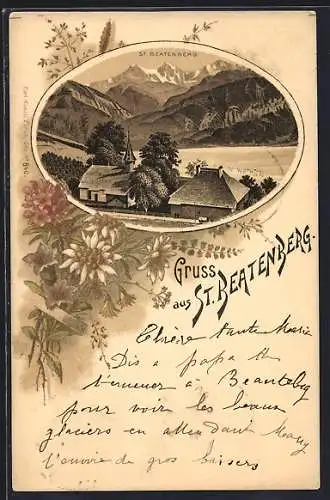 ST. BEATENBERG
Gruss
aus ST. BEATENBERG.
Chère tante Marie
Dis a papa
t'emener a Beautebg
pour voir les beaux
glaciers en attendant Many
t'envoie de gros baisers